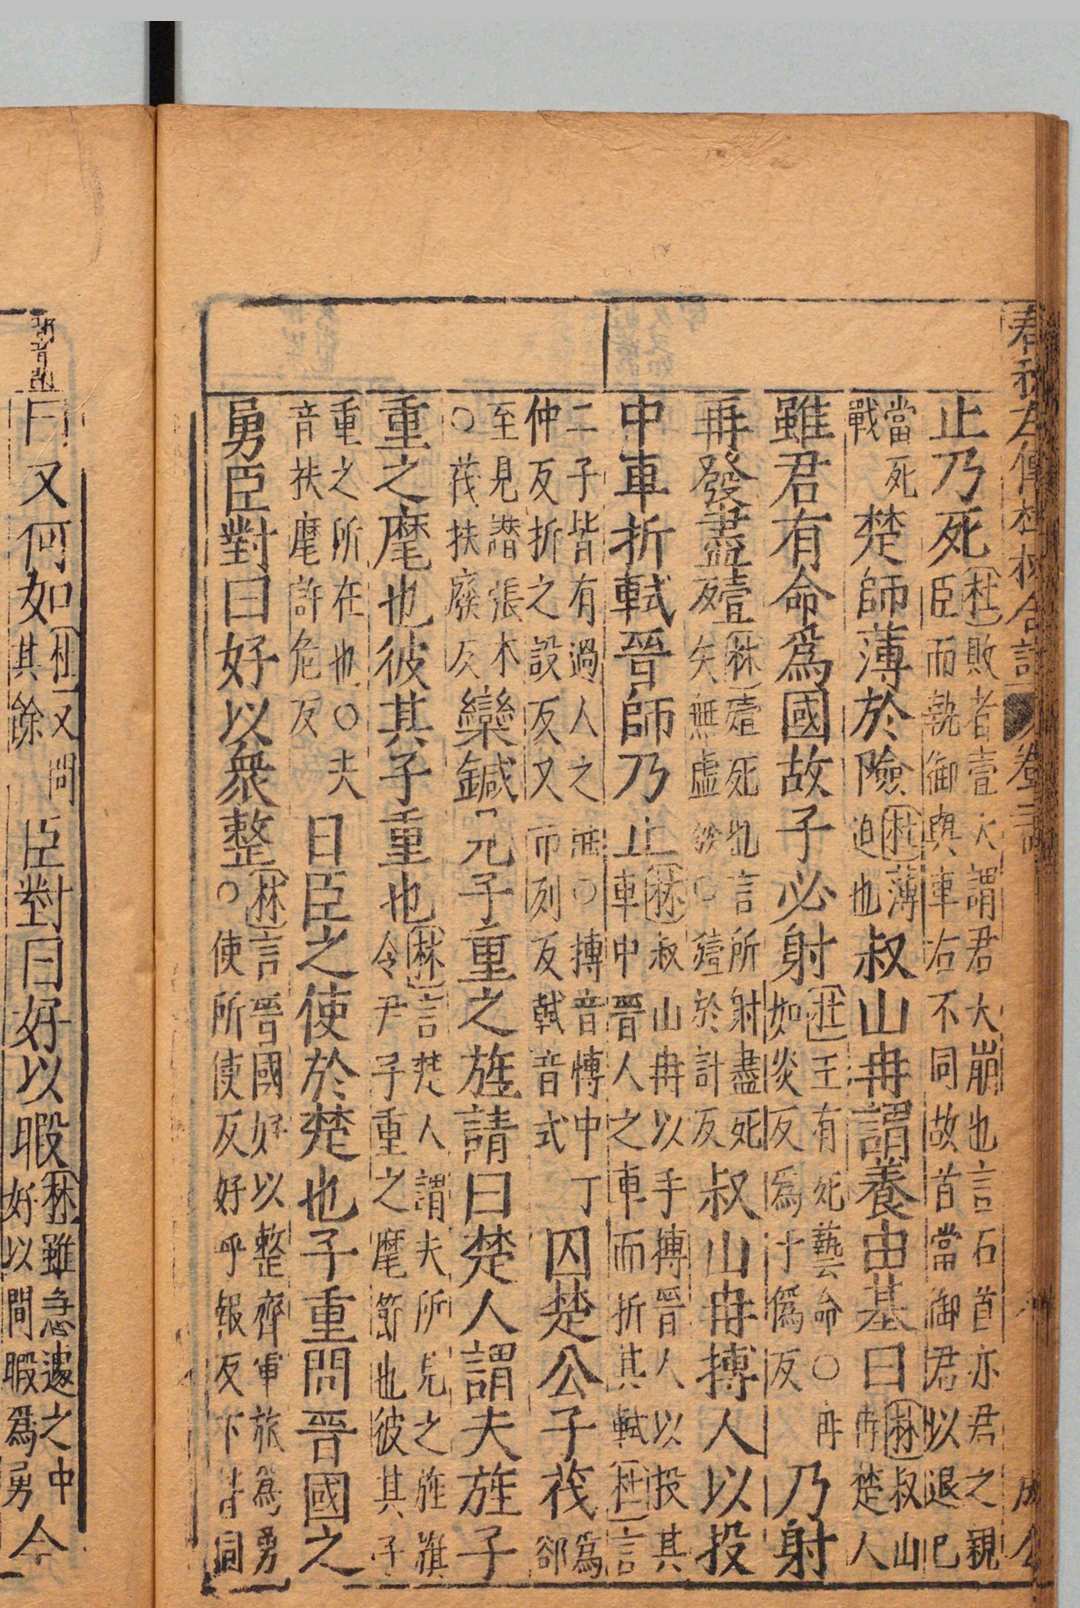 春秋左傳杜林合註 卷三 成公
止乃死 杜敗者壹大謂君大崩也言石首亦君之親
臣而執御與車右不同故首當御君以退己
當死
戰 楚師薄於險 杜薄
迫也 叔山冉謂養由基曰 林叔山
冉楚人
雖君有命爲國故子必射 杜王有死藝命○冉
如炎反爲于僞反 乃射
再發盡殪 林殪死也言所射盡死
矢無虛發○殪於計反 叔山冉搏人以投
中車折軾晉師乃止 林叔山冉以手搏晉人以投其
車中晉人之車而折其軾杜言
二子皆有過人之 ○搏音博中丁
仲反折之設反又市列反軾音式 囚楚公子茷 爲郤
至見譖張本
○茷扶廢反 欒鍼 元子重之旌請曰楚人謂夫旌子
重之麾也彼其子重也 林言楚人謂夫所見之旌旗
令尹子重之麾節也彼其子
重之所在也○夫
音扶麾許危反 日臣之使於楚也子重問晉國之
勇臣對曰好以衆整○ 林言晉國好以整齊軍旅爲勇
使所使反好呼報反下皆同
曰又何如 杜又問
其餘 臣對曰好以暇 林雖急遽之中
好以間暇爲勇 今